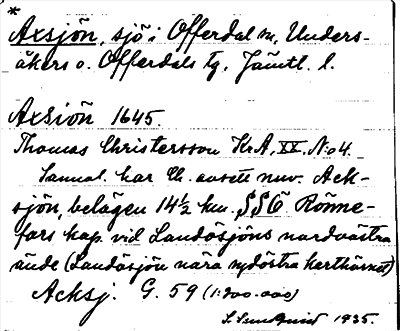 *
Axsjön, sjö i Offerdal m, Unders-
åkers o. Offerdals tg, Jämtl. l.
Axsiön 1645.
Thomas Christersson KrA, XX. N:o 4.
Sannol. har Ch. avsett nuv. Ack-
sjön, belägen 14½ km. SSÖ Rönne-
fors kap. vid Landösjöns nordvästra
ände (Landösjön nära sydöstra kerthörnet)
Acksj. G. 59 (1:200.000)
S. 1935.